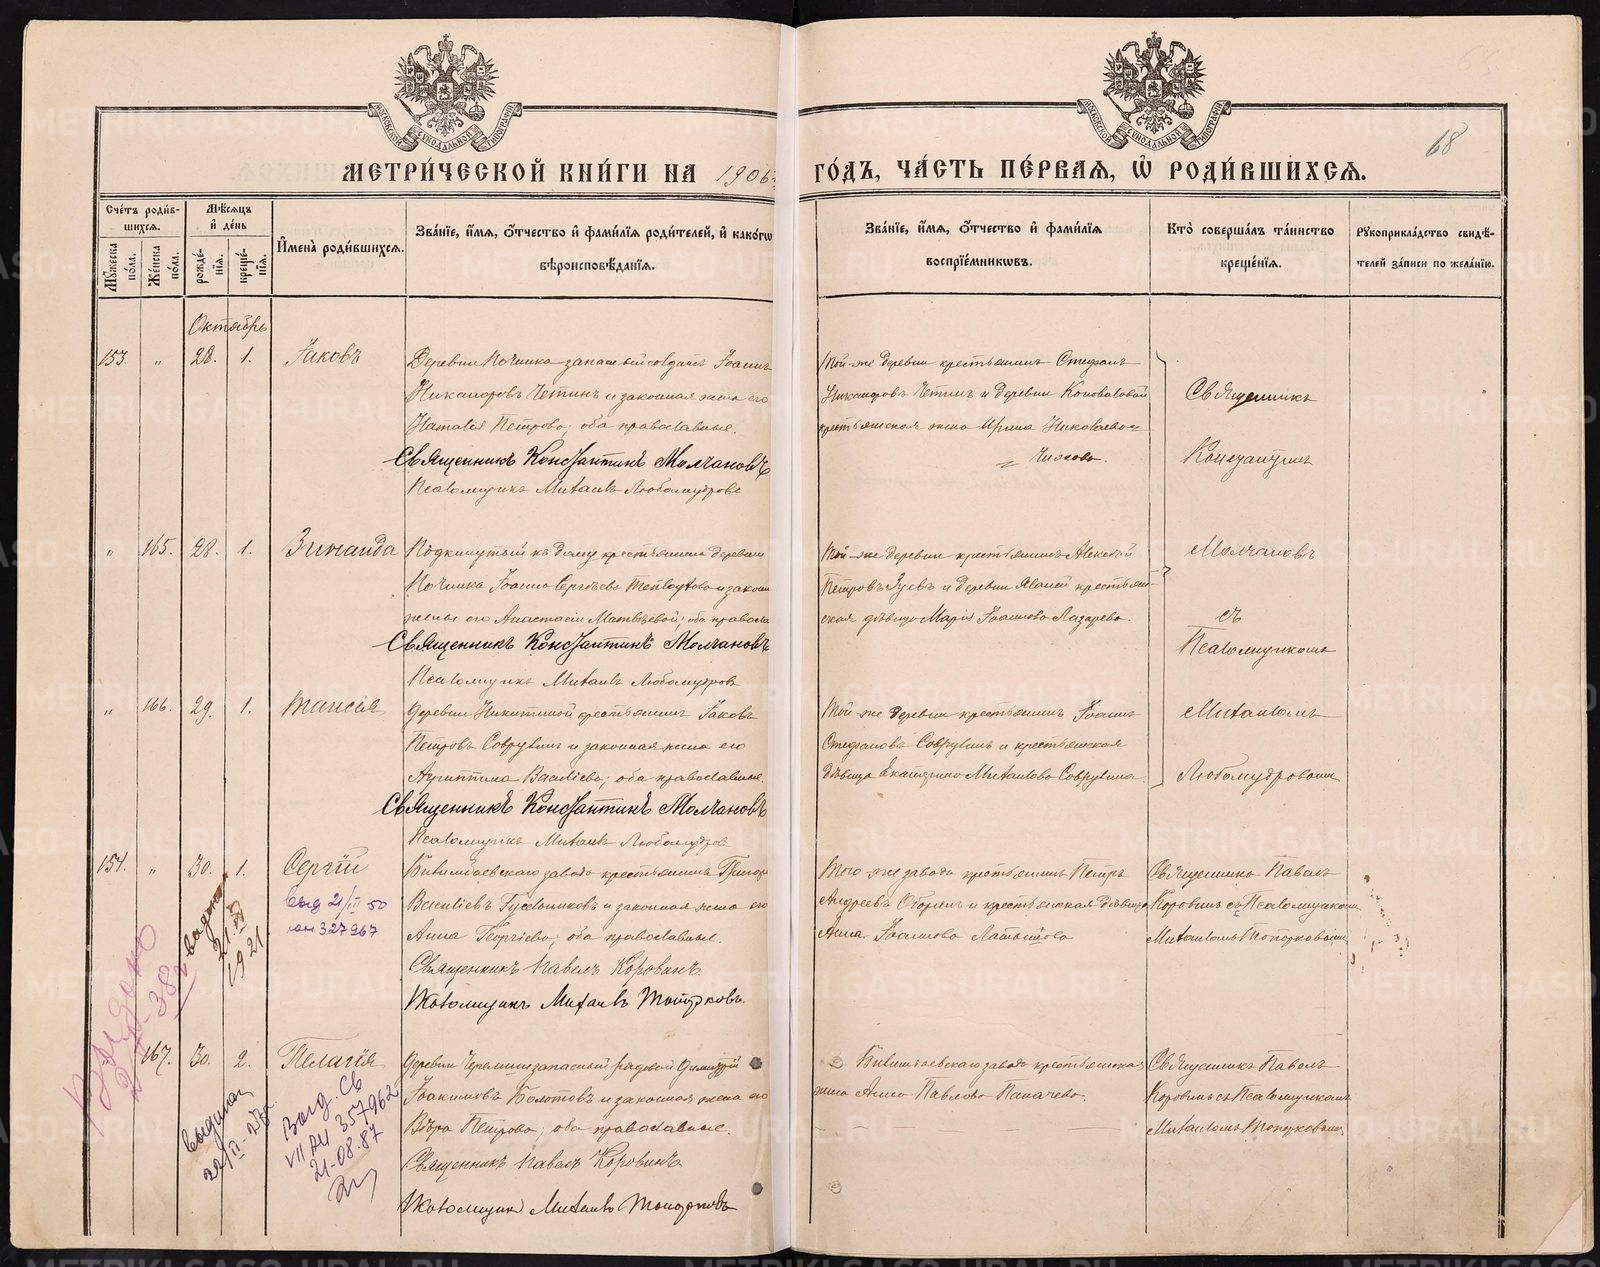 68
МЕТРИ́ЧЕСКОЙ КНИ́ГИ НА 1906
ГО́ДЪ, ЧА́СТЬ ПЕ́РВАѦ, Ѽ РОДИ́ВШИХСѦ.
Сче́тъ роди́в-
шихсѧ.
Мѣ́сѧцъ
и҆ де́нь
Мꙋ́жеска
по́ла.
Же́нска
по́ла.
рожде́-
нїѧ.
креще́-
нїѧ.
И҆мена̀ роди́вшихсѧ.
Зва́нїе, и҆́мѧ, ѻ҆́тчество и҆ фами́лїѧ роди́телей, и҆ како́гѡ
вѣроисповѣ́данїѧ.
Зва́нїе, и҆́мѧ, ѻ҆́тчество и҆ фами́лїѧ
воспрїе́мникѡвъ.
Кто̀ соверша́лъ та́инство
креще́нїѧ.
Рꙋкоприкла́дство свидѣ́-
телей за́писи по жела́нїю.
Октябрь
153 " 28. 1. Іаковъ
Деревни Починка запасный солдатъ Іоаннъ
Никаноровъ Четинъ и законная жена его
Наталія Петрова; оба православные.
Священникъ Константинъ Молчановъ
Псаломщикъ Михаилъ Любомудровъ
Той-же деревни крестьянинъ Стефанъ
Никаноровъ Четинъ и деревни Коноваловой
крестьянская жена Ирина Николаева
Священникъ
Константинъ
" 165. 28. 1. Зинаида
Подкинутый къ дому крестьянина деревни
Починка Іоанна Сергѣева и законн
жены его Анастасіи Матвѣевой; оба правосла
Священникъ Константинъ Молчановъ
Псаломщикъ Михаилъ Любомудровъ
Той-же деревни крестьянинъ Алексѣй
Петровъ Зуевъ и деревни крестьян-
ская дѣвица Марія Іоаннова Лазарева.
Молчановъ
съ
Псаломщикомъ
" 166. 29. 1. Таисія
Деревни Никитиной крестьянинъ Іаковъ
Петровъ Соврулинъ и законная жена его
Агриппина Васильева; оба православные.
Священникъ Константинъ Молчановъ
Псаломщикъ Михаилъ Любомудровъ
Той-же деревни крестьянинъ Іоаннъ
Стефановъ Соврулинъ и крестьянская
дѣвица Екатерина Михаилова Соврулина.
Михаиломъ
Любомудровымъ
154. " 30. 1. Сергій
выд 21/II 50
327967
выдана
21.XI
1921
Билимбаевскаго завода крестьянинъ Григор
Васильевъ Гусельниковъ и законная жена его
Анна Георгіева; оба православные.
Священникъ Павелъ Коровинъ.
Псаломщикъ Михаилъ Топорковъ.
Того-же завода крестьянинъ Петръ
Андреевъ Оборинъ и крестьянская дѣвица
Анна Іоаннова Латышова
Священникъ Павелъ
Коровинъ съ Псаломщикомъ
Михаиломъ Топорковымъ
Выдано
" 167. 30. 2. Пелагія
Выд. Св
VII АИ 357962
21-08.87
выдана
Деревни запасный рядовой Димитрій
Іоакимовъ Болотовъ и законная жена его
Вѣра Петрова; оба православные.
Священникъ Павелъ Коровинъ
Псаломщикъ Михаилъ Топорковъ
Билимбаевскаго завода крестьянская
жена Анна Павлова Папачева.
Священникъ Павелъ
Коровинъ съ Псаломщикомъ
Михаиломъ Топорковымъ
METRIKI.GASO-URAL.RU